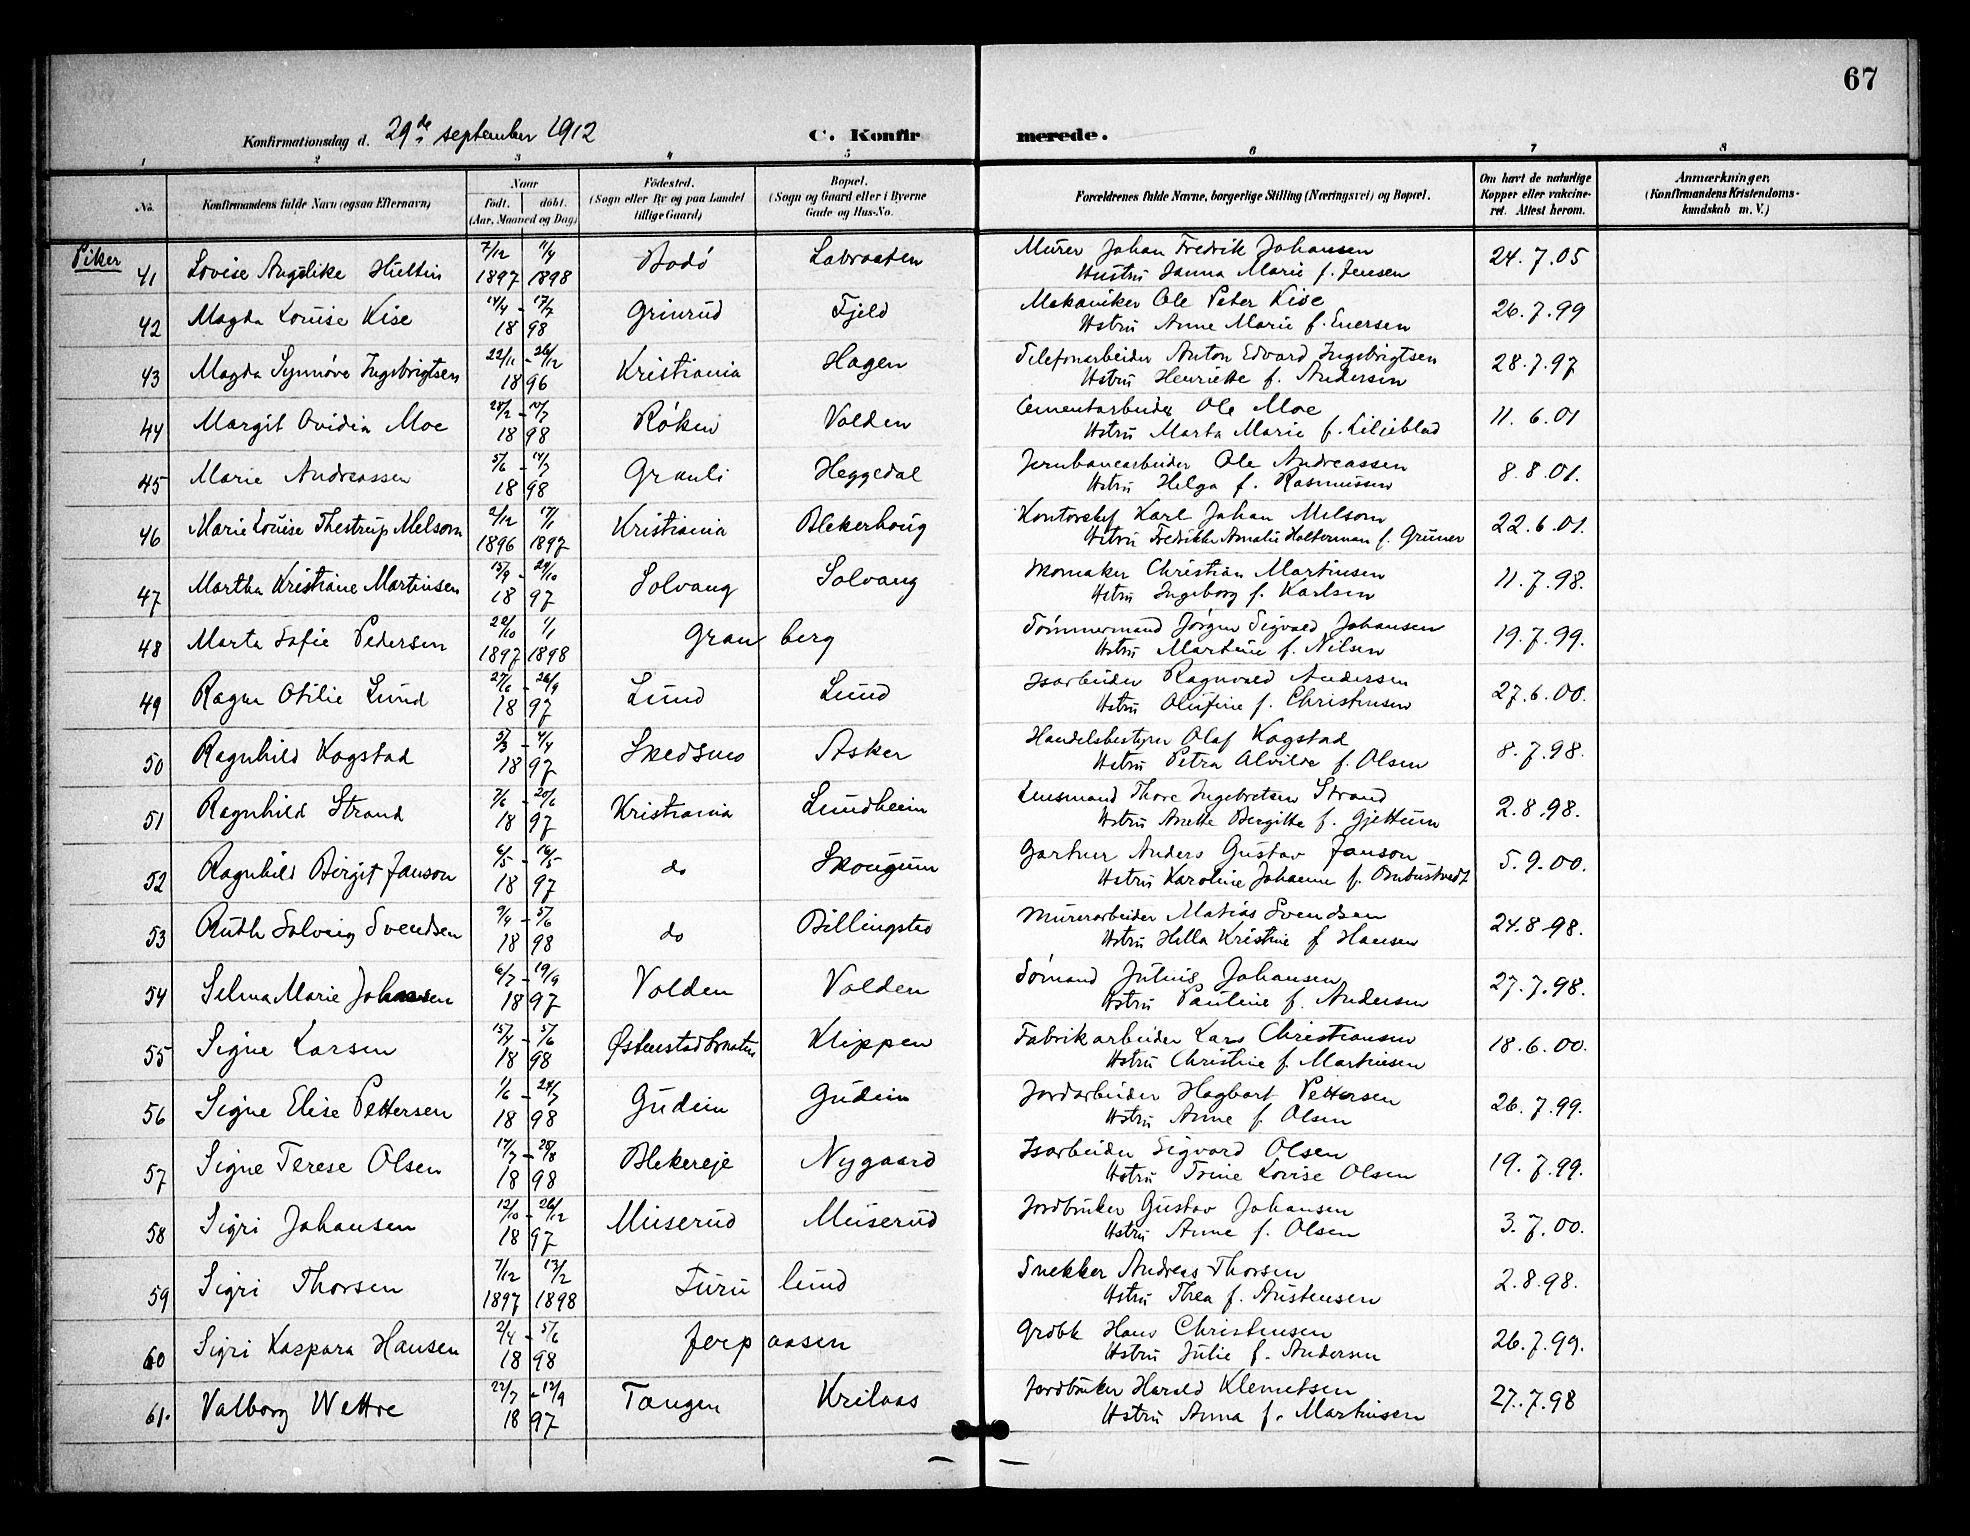 67
Konfirmationsdag d. 29de september 1912 C. Konfir merede.
1 2 3 4 5 6 7 8
No. Konfirmandens fulde Navn (ogsaa Efternavn) Naar født. døbt. (Aar, Maaned og Dag) Fødested. (Sogn eller By og paa Landet tillige Gaard) Bopæl. (Sogn og Gaard eller i Byerne Gade og Hus-No. Forældrenes fulde Navne, borgerlige Stilling (Næringsvei) og Bopæl. Om havt de naturlige Kopper eller vakcineret. Attest herom. Anmærkninger. (Konfirmandens Kristendomskundskab m. V.)
Piker
41 Lovise Angelike Hultin 7/12 1897 11/4 1898 Bodó Labraaten Murer Johan Fredrik Johansen 24.7.05
Hustru Janna Marie f. Jensen
42 Magda Louise Kise 14/4 - 17/7 1898 Grinrud Fjeld Mekaniker Ole Peter Kise 26.7.99
Hstru Anne Marie f. Enersen
43 Magda Synnøve Ingebrigtsen 22/11 - 26/12 1896 Kristiania Hagen Telefonarbeider Anton Edvard Ingebrigtsen 28.7.97
Hstru Henriette f. Andersen
44 Margit Ovidia Moe 1898 Røken Volden Cementarbeider Ole Moe 11.6.01
Hstru Marta Marie f. Lilieblad
45 Marie Andreassen 5/6 - 17/7 1898 Grauli Heggedal Jernbanearbeider Ole Andreassen 8.8.01.
Hstru Helga f. Rasmussen
46 Marie Louise Thestrup Melsom 2/12 1896 17/1 1897 Kristiania Blekerhoug Kontorchef Karl Johan Melsom 22.6.01.
Hstru Fredrikke Amalie Halterman f. Grüner
47 Martha Kristiane Martinsen 15/9 - 24/10 1897 Solvang Solvang Momaker Christian Martinsen 11.7.98.
Hstru Ingeborg f. Karlsen
48 Marta Sofie Pedersen 22/10 1897 1/1 1898 Gran berg Tømmermand Jørgen Sigvald Johansen 19.7.99.
Hstru Martine f. Nilsen
49 Ragna Otilie Lund 27/6 - 26/9 1897 Lund Lund Isarbeider Ragnvald Andersen 27.6.00.
Hstru Olufine f. Christensen
50 Ragnhild Kogstad 5/3 - 4/4 1897 Skedsmo Asker Handelsbestyrer Olaf Kogstad 8.7.98.
Hstru Petra Alvilde f. Olsen
51 Ragnhild Strand 7/6 - 20/6 1897 Kristiania Lundheim Lensmand Thore Ingebretsen Strand 2.8.98.
Hstru Anette Bergitte f. Gjettum
52 Ragnhild Birgit Janson 6/5 - 16/5 1897 do Skougum Gartner Anders Gustav Janson 5.9.00.
Hstru Karoline Johanne f. Ombustvedt
53 Ruth Solveig Svendsen 9/4 - 5/6 1898 do Billingstad Murerarbeider Matias Svendsen 24.8.98.
Hstru Hilla Kristine f Hansen
54 Selma Marie Johansen 6/7 - 19/9 1897 Volden Volden Sømand Julius Johansen 27.7.98.
Hstru Pauline f. Andersen
55 Signe Larsen 15/4 - 5/6 1898 Østenstad Klippen Fabrikarbeider Lars Christiansen 18.6.00.
Hstru Christine f. Martinsen
56 Signe Elise Pettersen 1/6 - 24/7 1898 Gudeim Gudeim Jordarbeider Hagbart Pettersen 26.7.99.
Hstru Anne f. Olsen
57 Signe Terese Olsen 17/7 - 28/8 1898 Blekereje Nygaard Isarbeider Sigvard Olsen 19.7.99.
Hstru Trine Lovise Olsen
58 Sigri Johansen 12/10 - 26/12 1897 Muserud Muserud Jordbruker Gustav Johansen 3.7.00.
Hstru Anne f. Olsen
59 Sigri Thorsen 7/12 1897 13/2 1898 Furu lund Snekker Andreas Thorsen 2.8.98.
Hstru Thea f. Austensen
60 Sigri Kaspara Hansen 2/4 - 5/6 1898 Jerp aasen Grdbk Hans Christensen 26.7.99.
Hstru Julie f. Andersen
61. Valborg Wettre 22/7 - 12/9 1897 Tangen Krilaas Jordbruker Harald Klemetsen 27.7.98
Hstru Anna f. Martinsen